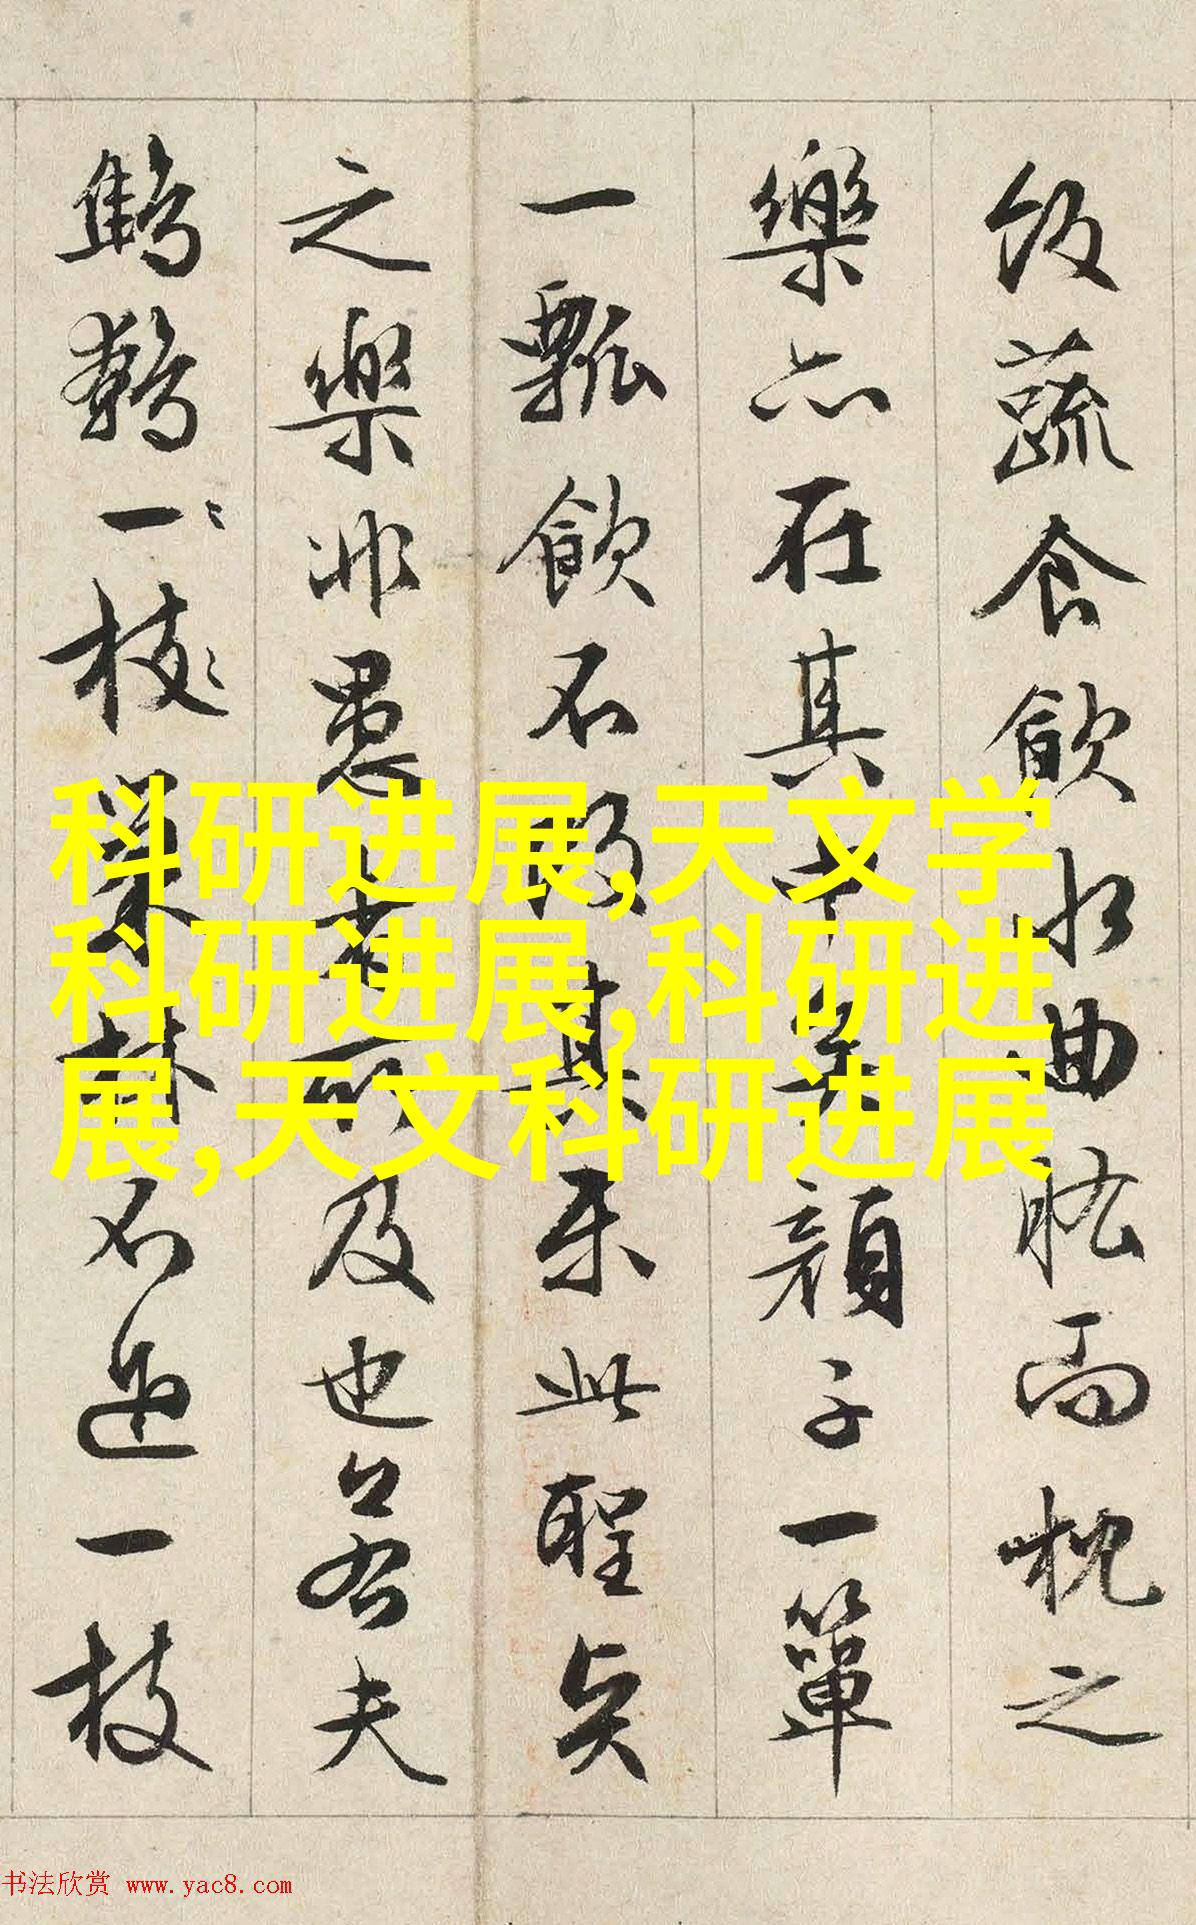 飯蔬食飲水曲肱而枕之
樂亦在其中矣顏子一簞
一瓢飲不改其樂此聖賢
之樂非愚者所及也若夫
鷦鷯一〻枝〻巢林不過一枝
科研进展,天文学
科研进展,科研进
展,天文科研进展
书法欣赏 www.yac8.com